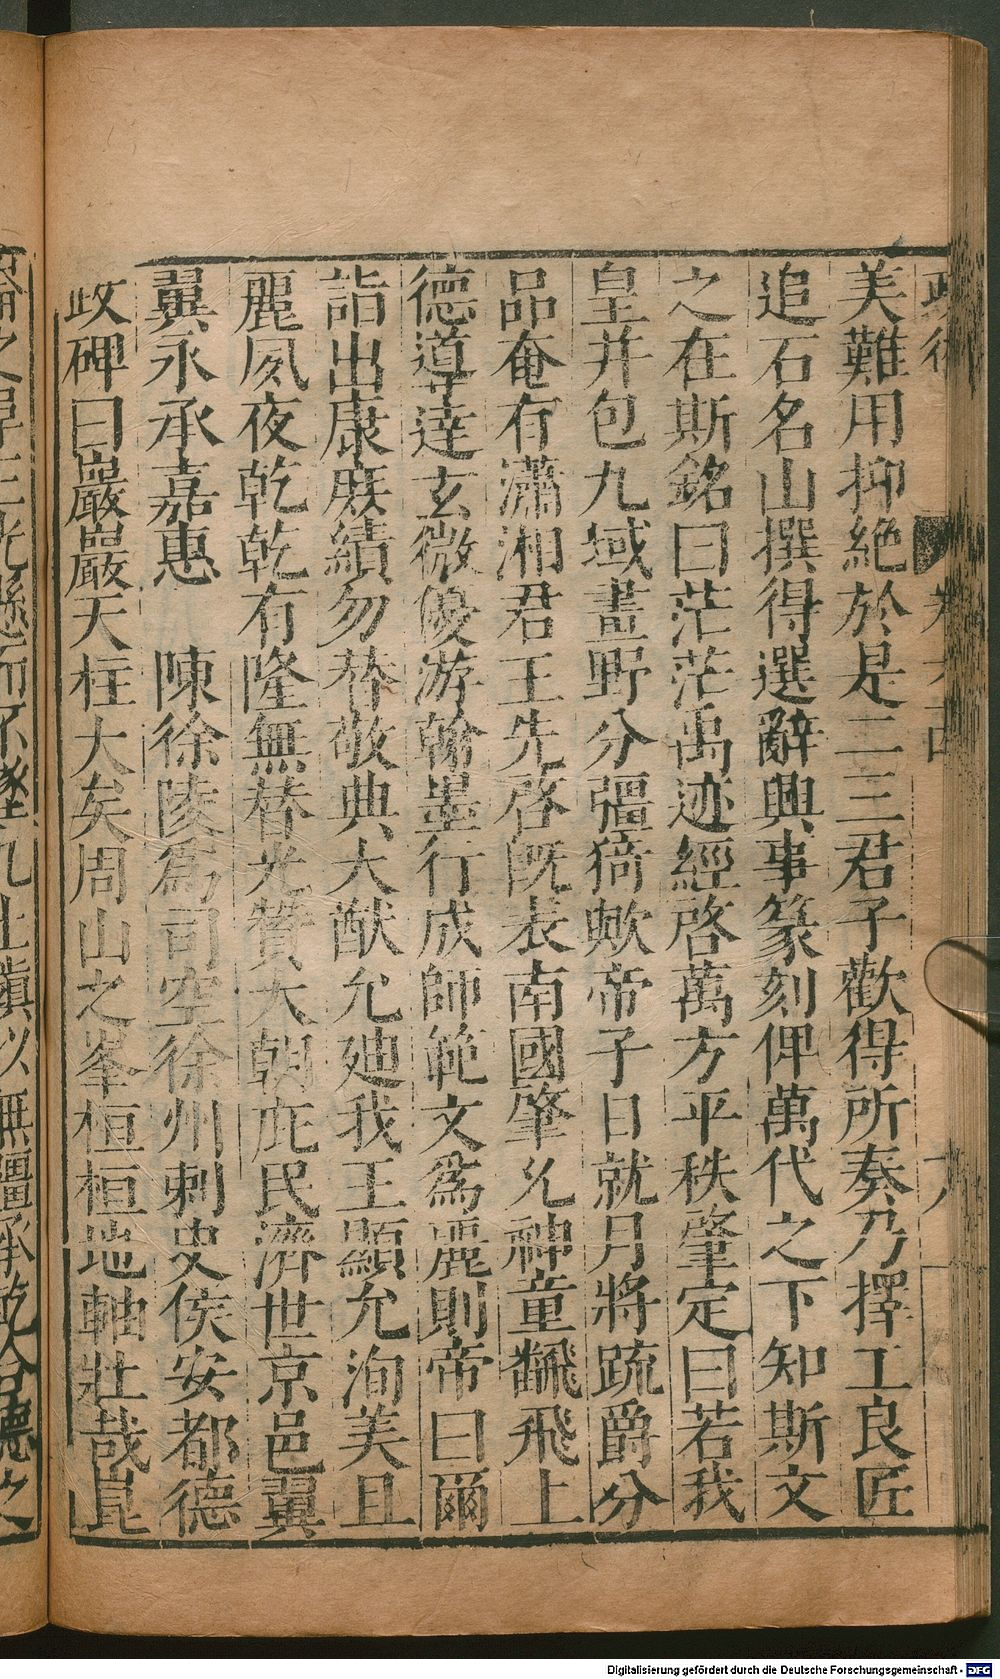 美難用抑絶於是二三君子歡得所奏乃擇工良匠
追石名山撰得選辭興事篆刻俾萬代之下知斯文
之在斯銘曰茫茫禹迹經啓萬方平秩肇定曰若我
皇并包九域畫野分疆猗歟帝子日就月將疏爵分
品奄有瀟湘君王先啓既表南國肇允神童飜飛上
德道䔲達玄微優游翰墨行成師範文爲麗則帝曰爾
諧出康庶績勿替敬典大猷允廸我王顯允洵美且
麗夙夜乾乾有隆無替光贊大朝庇民濟世京邑翼
翼永承嘉惠　陳徐陵爲司空徐州刺史侯安都德
政碑曰巖巖天柱大矣周山之峯桓桓地軸壯哉崑
Digitalisierung gefördert durch die Deutsche Forschungsgemeinschaft - DFG